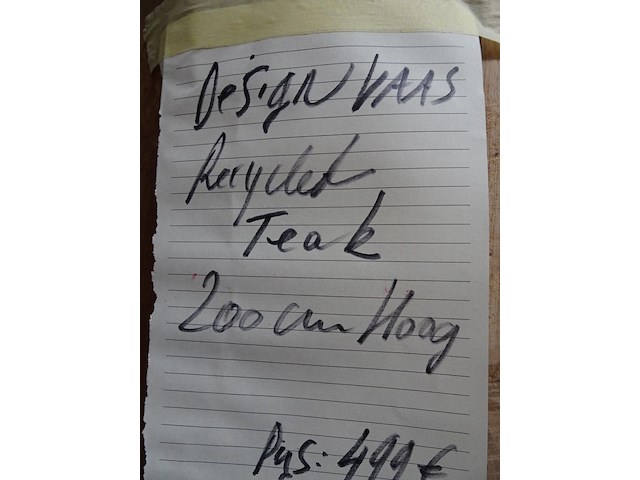 Design VAAS
Recycled
Teak
200 cm Hoog
Prys: 499 €